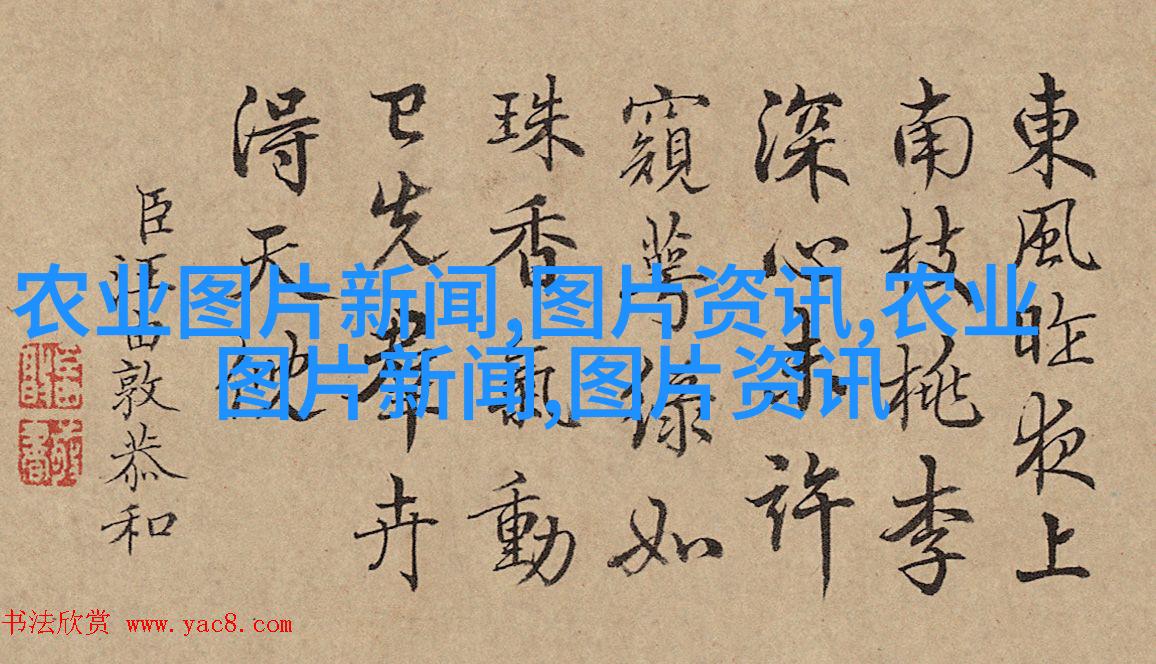 東風昨夜上
南枝桃李
深心未許
窺蕚綠如
珠香氣動
已先羣卉
得天
臣汪由敦恭和
农业图片新闻,图片资讯,农业
图片新闻,图片资讯
书法欣赏 www.yac8.com